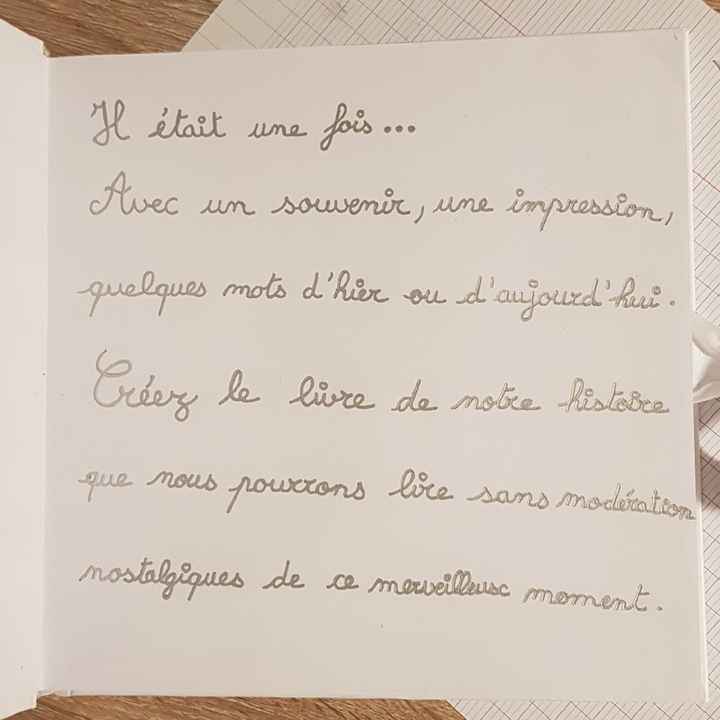 Il était une fois...
Avec un souvenir, une impression,
quelques mots d'hier ou d'aujourd'hui.
Créez le livre de notre histoire
que nous pourrons lire sans modération
nostalgiques de ce merveilleux moment.